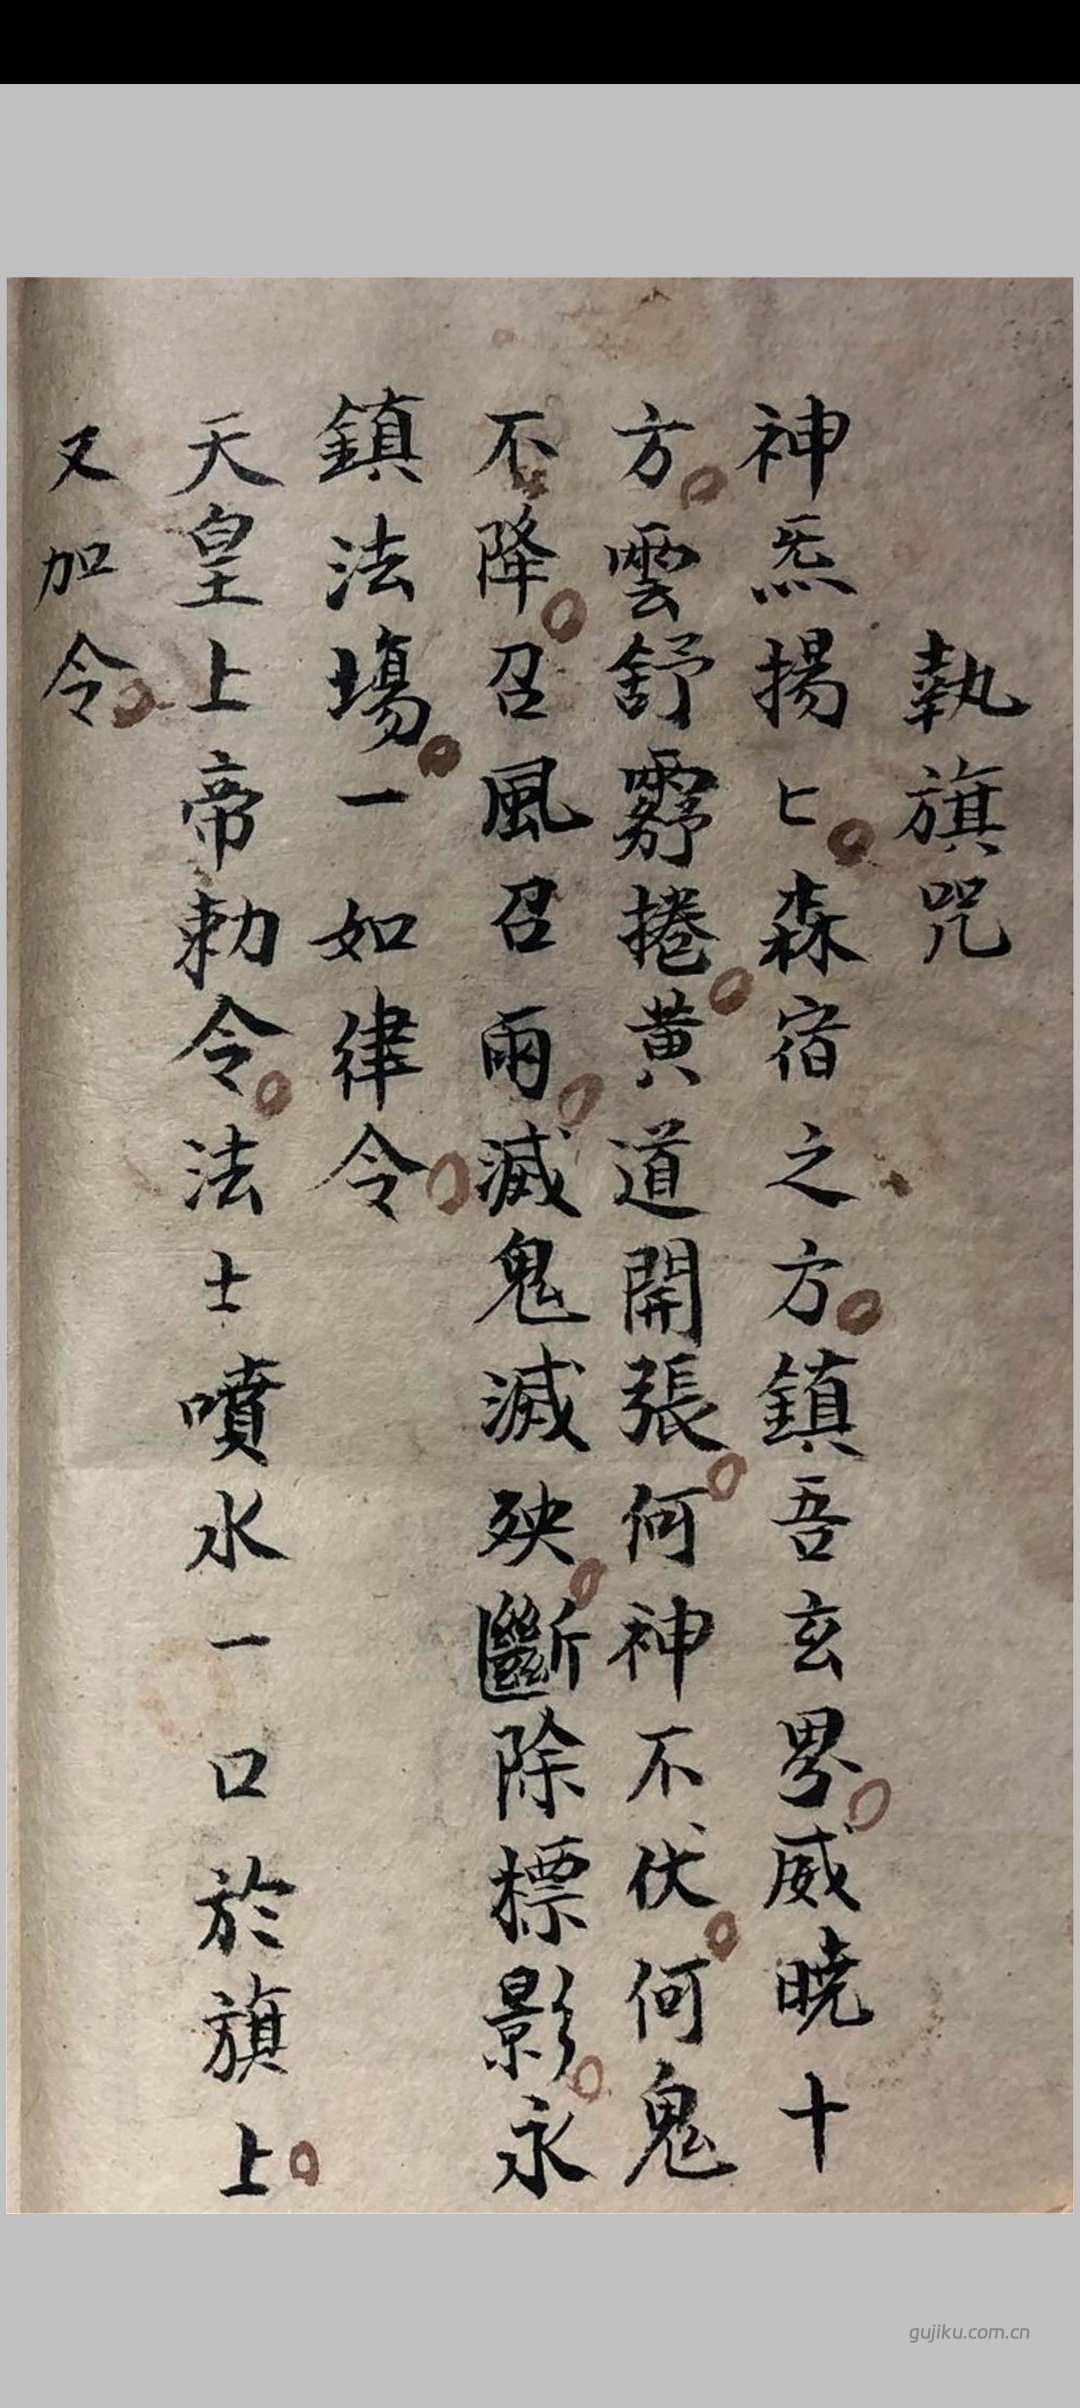 執旗咒
神炁揚匕森宿之方鎮吾玄界威曉十
方雲舒霧捲黄道開張何神不伏何鬼
不降召風召雨滅鬼滅殃斷除標影永
鎮法場一如律令
天皇上帝勅令法士噴水一口於旗上
又加令
gujiku.com.cn